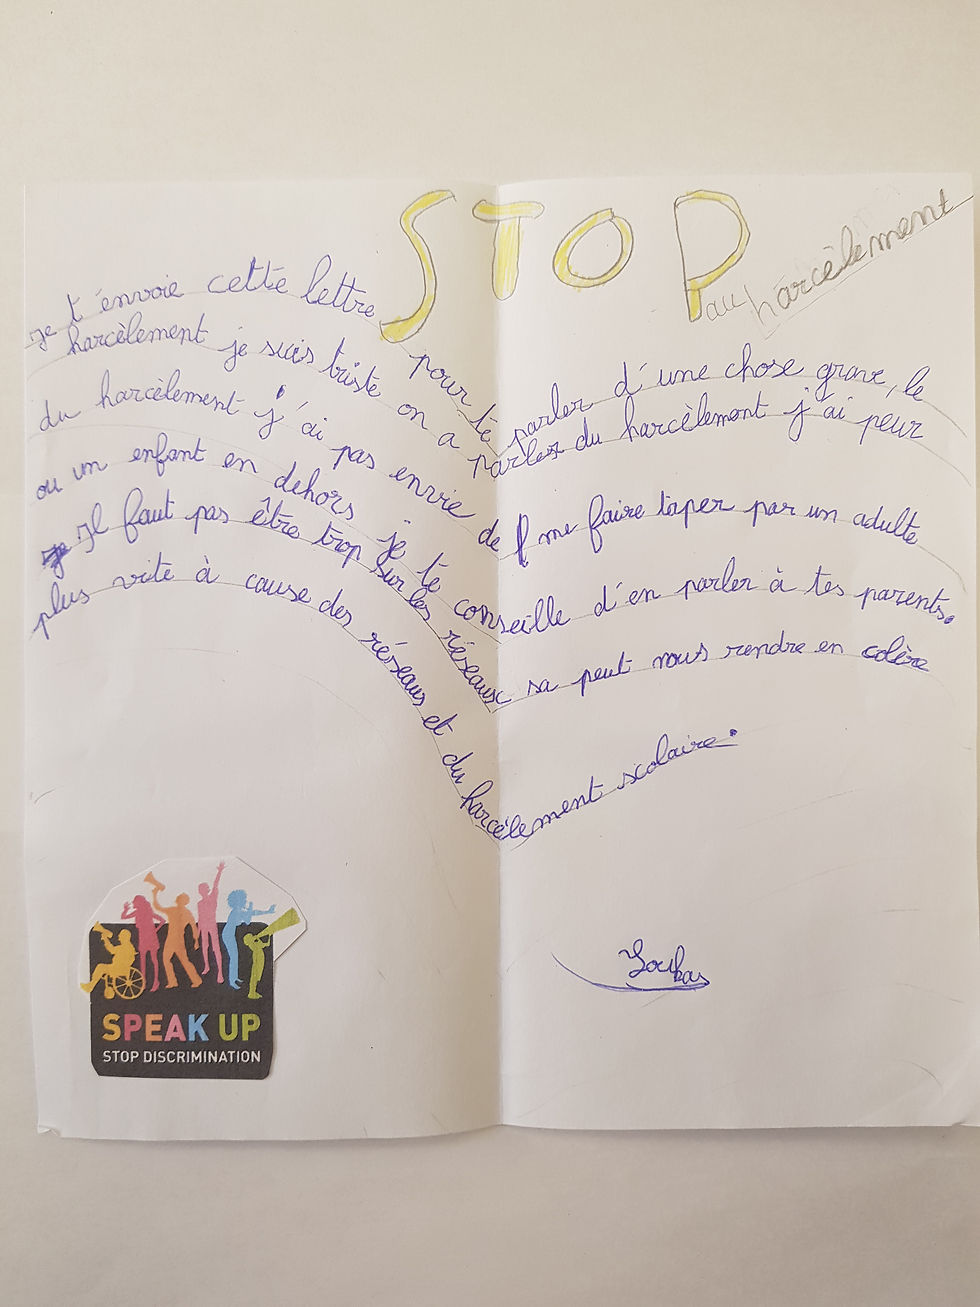 STOP
au harcèlement
je t'envoie cette lettre pour te parler d'une chose grave, le
harcèlement je suis triste on a parler du harcèlement j'ai peur
du harcèlement j'ai pas envie de me faire taper par un adulte
ou un enfant en dehors je te conseille d'en parler à tes parents.
Il faut pas être trop sur les réseaux sa peut nous rendre en colère
plus vite à cause des réseaus et du harcèlement scolaire.
SPEAK UP
STOP DISCRIMINATION